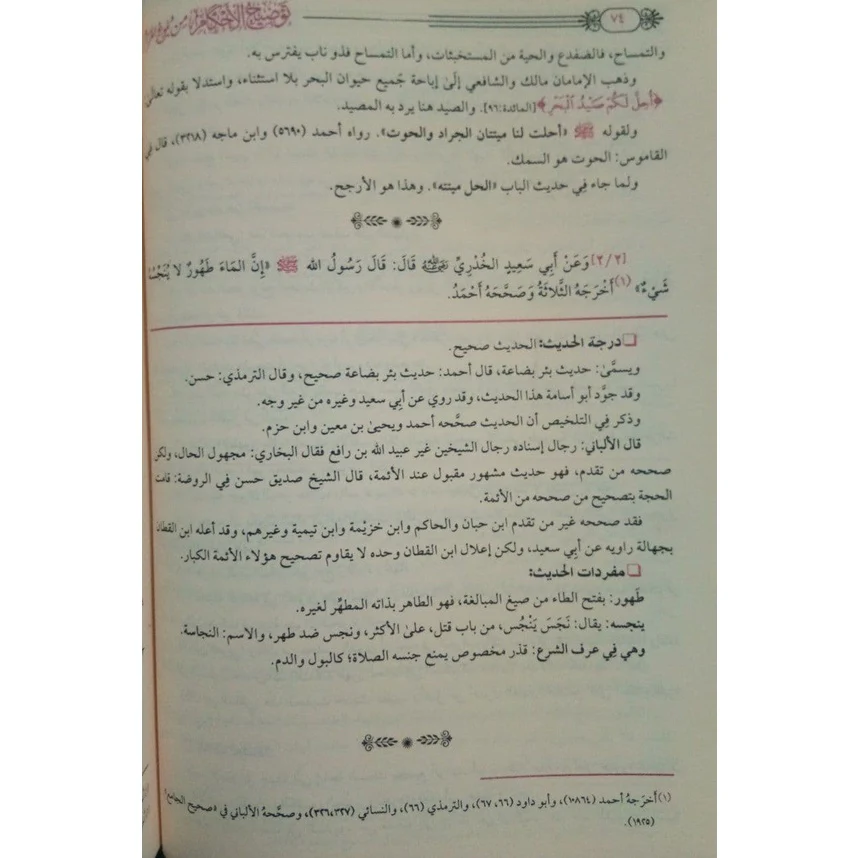 ٧٤
توضيح الأحكام من بلوغ المرام
والتمساح، فالضفدع والحية من المستخبثات، وأما التمساح فذو ناب يفترس به.
وذهب الإمامان مالك والشافعي إلَىٰ إباحة جَميع حيوان البحر بلا استثناء، واستدلا بقوله تعالَىٰ
﴿أُحِلَّ لَكُمْ صَيْدُ الْبَحْرِ﴾ [المائدة:٩٦]. والصيد هنا يرد به المصيد.
ولقوله ﷺ «أحلت لنا ميتتان الجراد والحوت». رواه أحمد (٥٦٩٠) وابن ماجه (٣٢١٨)، قال في
القاموس: الحوت هو السمك.
ولما جاء فِي حديث الباب «الحل ميتته». وهذا هو الأرجح.
[٢/٢] وَعَنْ أَبِي سَعِيدٍ الخُدْرِيِّ رضي الله عنه قَالَ: قَالَ رَسُولُ الله ﷺ «إِنَّ المَاءَ طَهُورٌ لا يُنَجِّسُهُ
شَيْءٌ» (١) أَخْرَجَهُ الثَّلاثَةُ وَصَحَّحَهُ أَحْمَدُ.
❑ درجة الحديث: الحديث صحيح.
ويسمَّىٰ: حديث بئر بضاعة، قال أحمد: حديث بئر بضاعة صحيح، وقال الترمذي: حسن.
وقد جوَّد أبو أسامة هذا الحديث، وقد روي عن أبِي سعيد وغيره من غير وجه.
وذكر فِي التلخيص أن الحديث صحَّحه أحمد ويحيَىٰ بن معين وابن حزم.
قال الألباني: رجال إسناده رجال الشيخين غير عبيد الله بن رافع فقال البخاري: مجهول الحال، ولكن
صححه من تقدم، فهو حديث مشهور مقبول عند الأئمة، قال الشيخ صديق حسن فِي الروضة: قامت
الحجة بتصحيح من صححه من الأئمة.
فقد صححه غير من تقدم ابن حبان والحاكم وابن خزيْمة وابن تيمية وغيرهم، وقد أعله ابن القطان
بجهالة راويه عن أبِي سعيد، ولكن إعلال ابن القطان وحده لا يقاوم تصحيح هؤلاء الأئمة الكبار.
❑ مفردات الحديث:
طَهور: بفتح الطاء من صيغ المبالغة، فهو الطاهر بذاته المطهِّر لغيره.
ينجسه: يقال: نَجَسَ يَنْجُس، من باب قتل، علَىٰ الأكثر، ونجس ضد طهر، والاسم: النجاسة.
وهي فِي عرف الشرع: قذر مخصوص يمنع جنسه الصلاة؛ كالبول والدم.
(١) أخرَجهُ أحمد (١٠٨٦٤)، وأبو داود (٦٦، ٦٧)، والترمذي (٦٦)، والنسائي (٣٢٦،٣٢٧)، وصحَّحهُ الألبانِي فِي «صحيح الجامع»
(١٩٢٥).